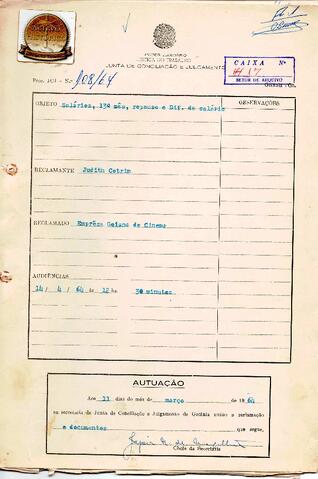 PODER JUDICIÁRIO
JUSTIÇA DO TRABALHO
JUNTA DE CONCILIAÇÃO E JULGAMENTO
CAIXA Nº
SETOR DE ARQUIVO
Goiânia - Go.
Proc. JCJ - N.º 908/64
OBJETO Salários, 13º mês, repouso e Dif. de salário
OBSERVAÇÕES
RECLAMANTE Judith Cotrim
RECLAMADO Emprêsa Goiana de Cinema
AUDIÊNCIAS
14/ 4 / 64 às 12 hs 30 minutos.
AUTUAÇÃO
Aos 11 dias do mês de março de 1964
na secretaria da Junta de Conciliação e Julgamento de Goiânia autuo a reclamação
e documentos que segue,
Chefe da Secretaria